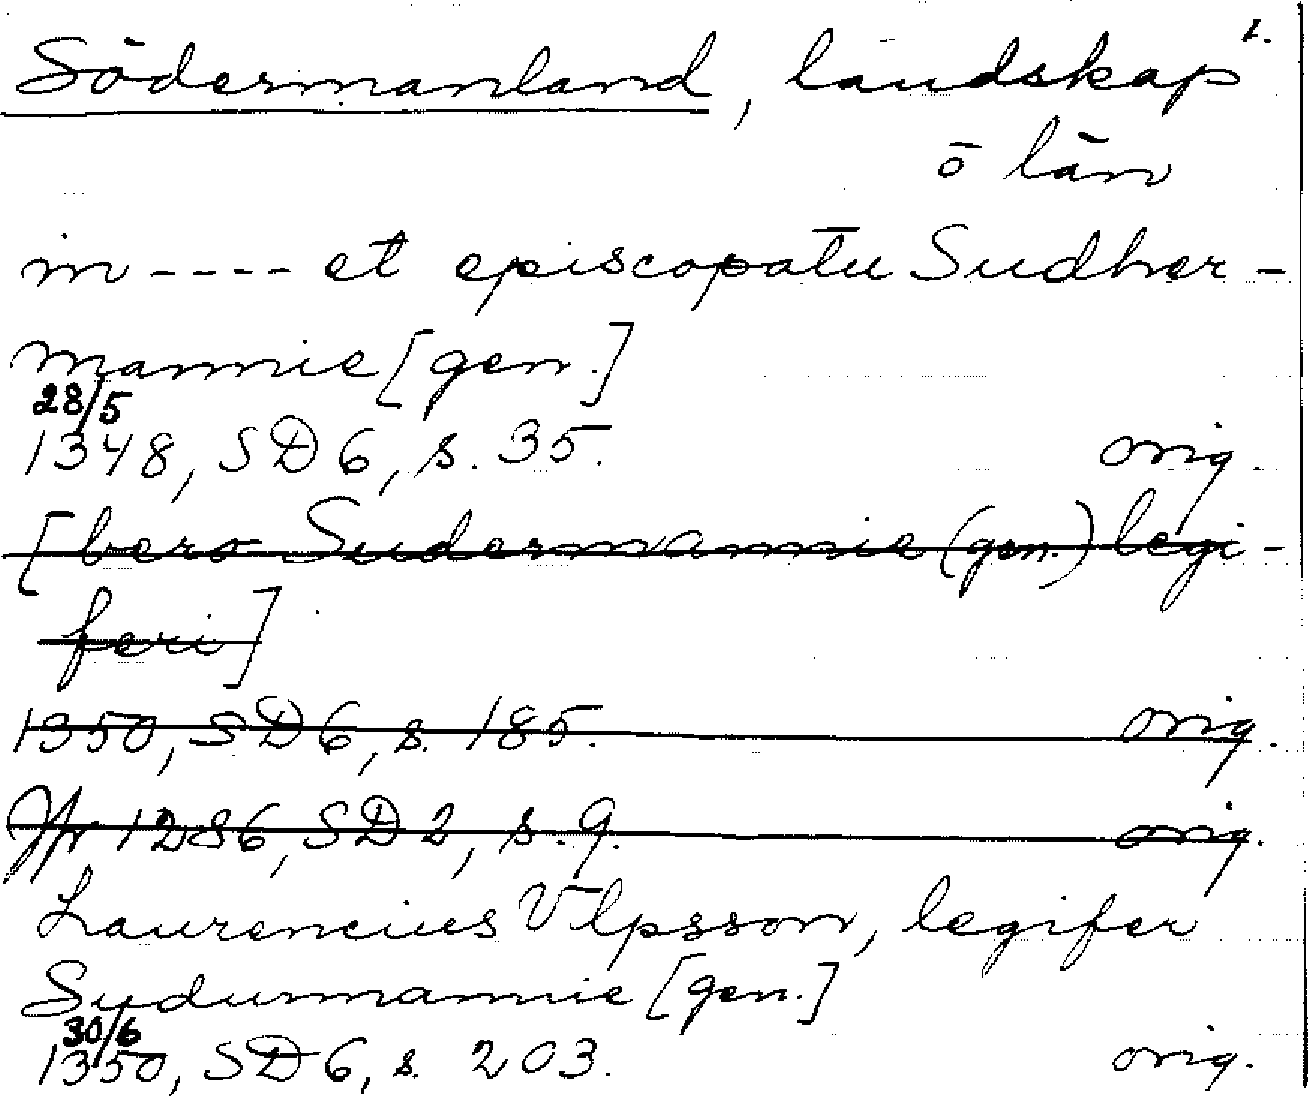 Södermanland, landskap 1.
o län
in ---- et episcopatu Sudher-
mannie [gen.]
28/5
1348, SD 6, s. 35. orig.
[bero Sudermannie (gen.) legi-
feri]
1350, SD 6, s. 185. orig.
Jfr 1286, SD 2, s. 9. orig.
Laurencius Vlpsson, legifer
Sudurmannie [gen.]
30/6
1350, SD 6, s. 203. orig.